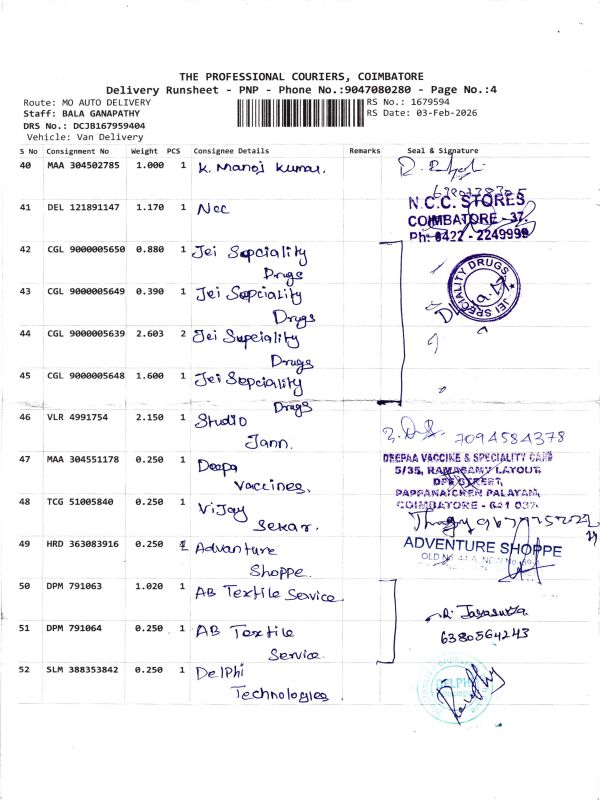 THE PROFESSIONAL COURIERS, COIMBATORE
Delivery Runsheet - PNP - Phone No.:9047080280 - Page No.:4
Route: MO AUTO DELIVERY
Staff: BALA GANAPATHY
DRS No.: DCJB167959404
Vehicle: Van Delivery
RS No.: 1679594
RS Date: 03-Feb-2026
S No Consignment No Weight PCS Consignee Details Remarks Seal & Signature
40 MAA 304502785 1.000 1 K. Manoj Kumar.
41 DEL 121891147 1.170 1 Ncc
N.C.C. STORES
COIMBATORE - 37.
Ph: 0422 - 2249999
42 CGL 9000005650 0.880 1 Jei Sopciality
Drugs
JEI SPECIALITY DRUGS
43 CGL 9000005649 0.390 1 Jei Sopciality
Drugs
44 CGL 9000005639 2.603 2 Jei Supeciality
Drugs
45 CGL 9000005648 1.600 1 Jei Sepciality
Drags
46 VLR 4991754 2.150 1 Studio
Jann.
7094584378
47 MAA 304551178 0.250 1 Deepa
Vaccines.
DEEPAA VACCINE & SPECIALITY CARE
5/35, RAMASAMY LAYOUT,
STREET,
PAPPANAICKEN PALAYAM,
COIMBATORE - 641 037.
48 TCG 51005840 0.250 1 Vijay
Sekar.
49 HRD 363083916 0.250 1 Advanture
Shoppe.
ADVENTURE SHOPPE
OLD No.
50 DPM 791063 1.020 1 AB Textile Service.
51 DPM 791064 0.250 1 AB Textile
Service.
6380564243
52 SLM 388353842 0.250 1 Delphi
Technologies.
DELPHI